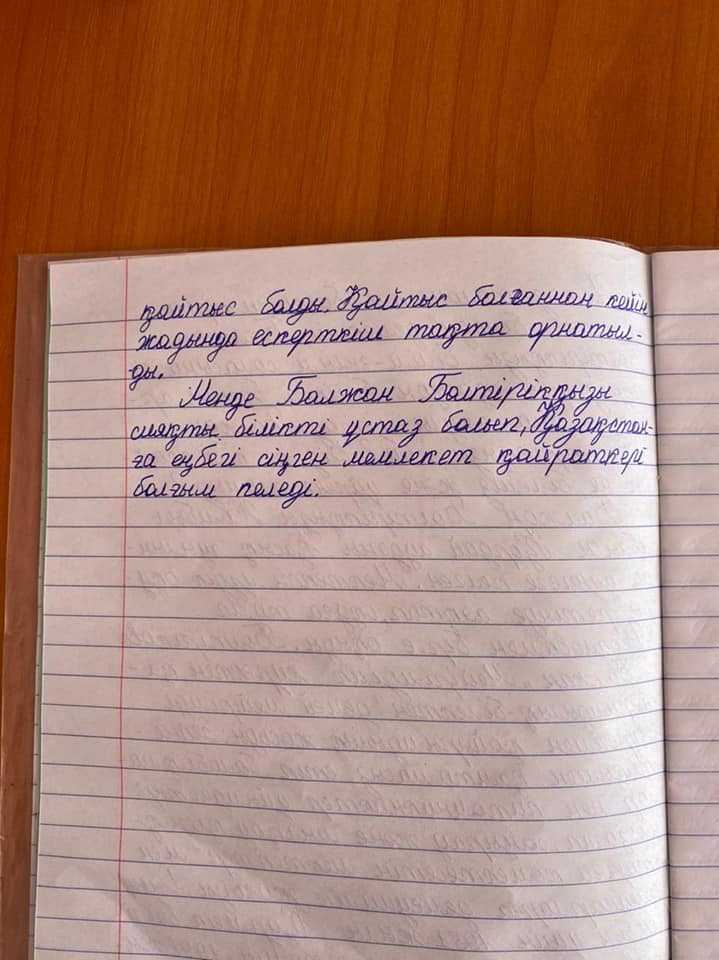 қайтыс болды. Қайтыс болғаннан кейін
жадында ескерткіш тақта орнатыл-
ды.
Менде Балжан Бөлтірікқызы
сияқты білікті ұстаз болып, Қазақстан-
ға еңбегі сіңген мемлекет қайраткері
болғым келеді.